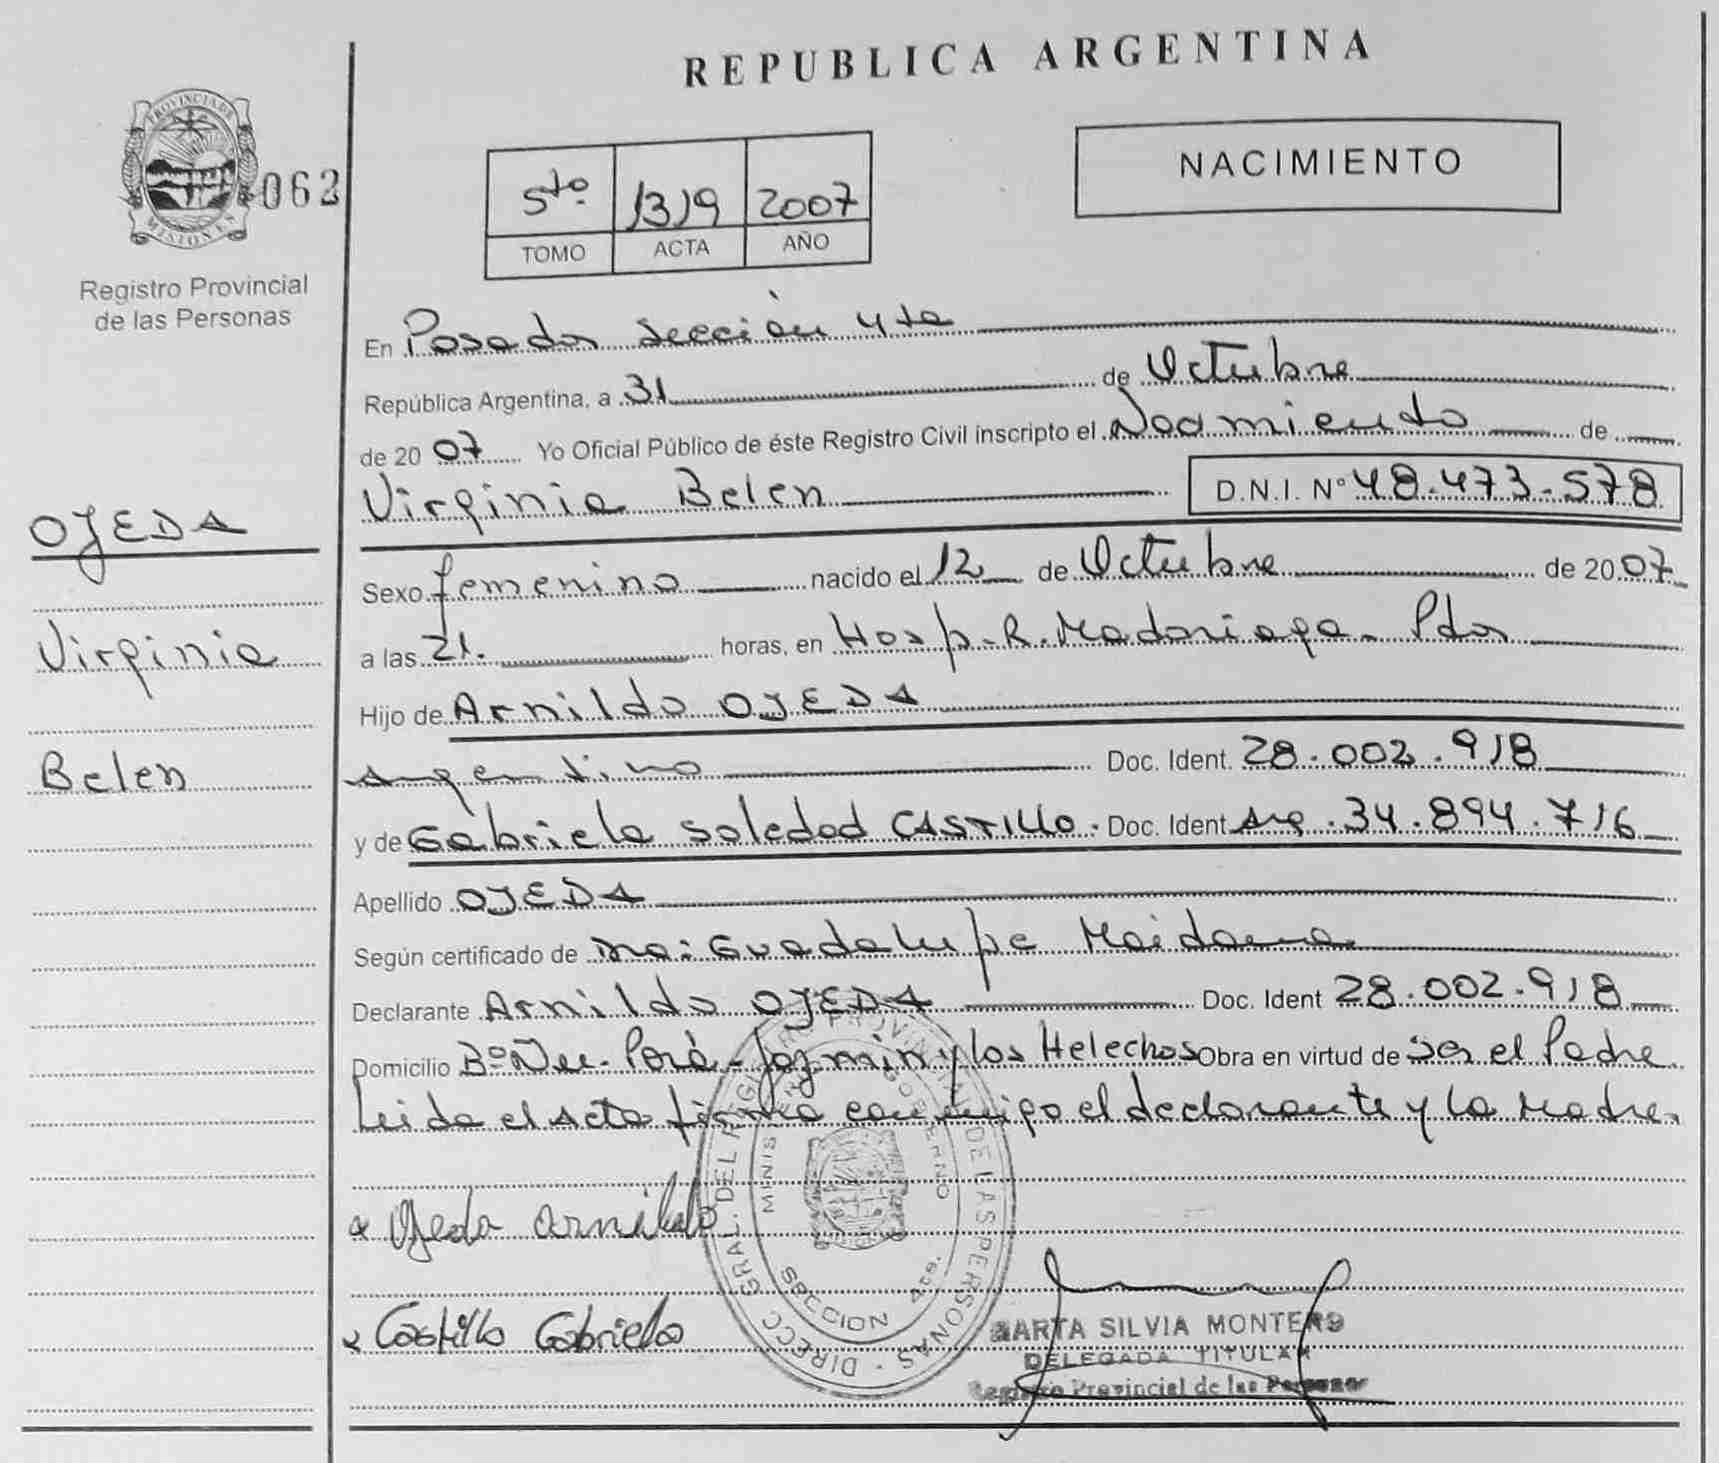 REPUBLICA ARGENTINA
PROVINCIA DE
MISIONES
062
Registro Provincial
de las Personas
5to. 1319 2007
TOMO ACTA AÑO
NACIMIENTO
En Posadas sección 4ta
República Argentina, a 31 de Octubre
de 2007 Yo Oficial Público de éste Registro Civil inscripto el Nacimiento de
Virginia Belen D.N.I. Nº 48.473.578
OJEDA
Virginia
Belen
Sexo femenino nacido el 12 de Octubre de 2007
a las 21. horas, en Hosp. R. Madariaga - Pdas
Hijo de Arnildo OJEDA
Argentino Doc. Ident. 28.002.918
y de Gabriela Soledad CASTILLO. Doc. Ident Arg. 34.894.716
Apellido OJEDA
Según certificado de Guadalupe Maidana
Declarante Arnildo OJEDA Doc. Ident 28.002.918
Domicilio Bº Ñu-Porá - Jazmin y los Helechos Obra en virtud de ser el Padre
Leida el Acta firma conmigo el declarante y la Madre.
Ojeda Arnildo
Castillo Gabriela
DIRECC GRAL. DEL REGISTRO PROVINCIAL DE LAS PERSONAS
SECCION 4ta.
MARTA SILVIA MONTERO
DELEGADA TITULAR
Registro Provincial de las Personas